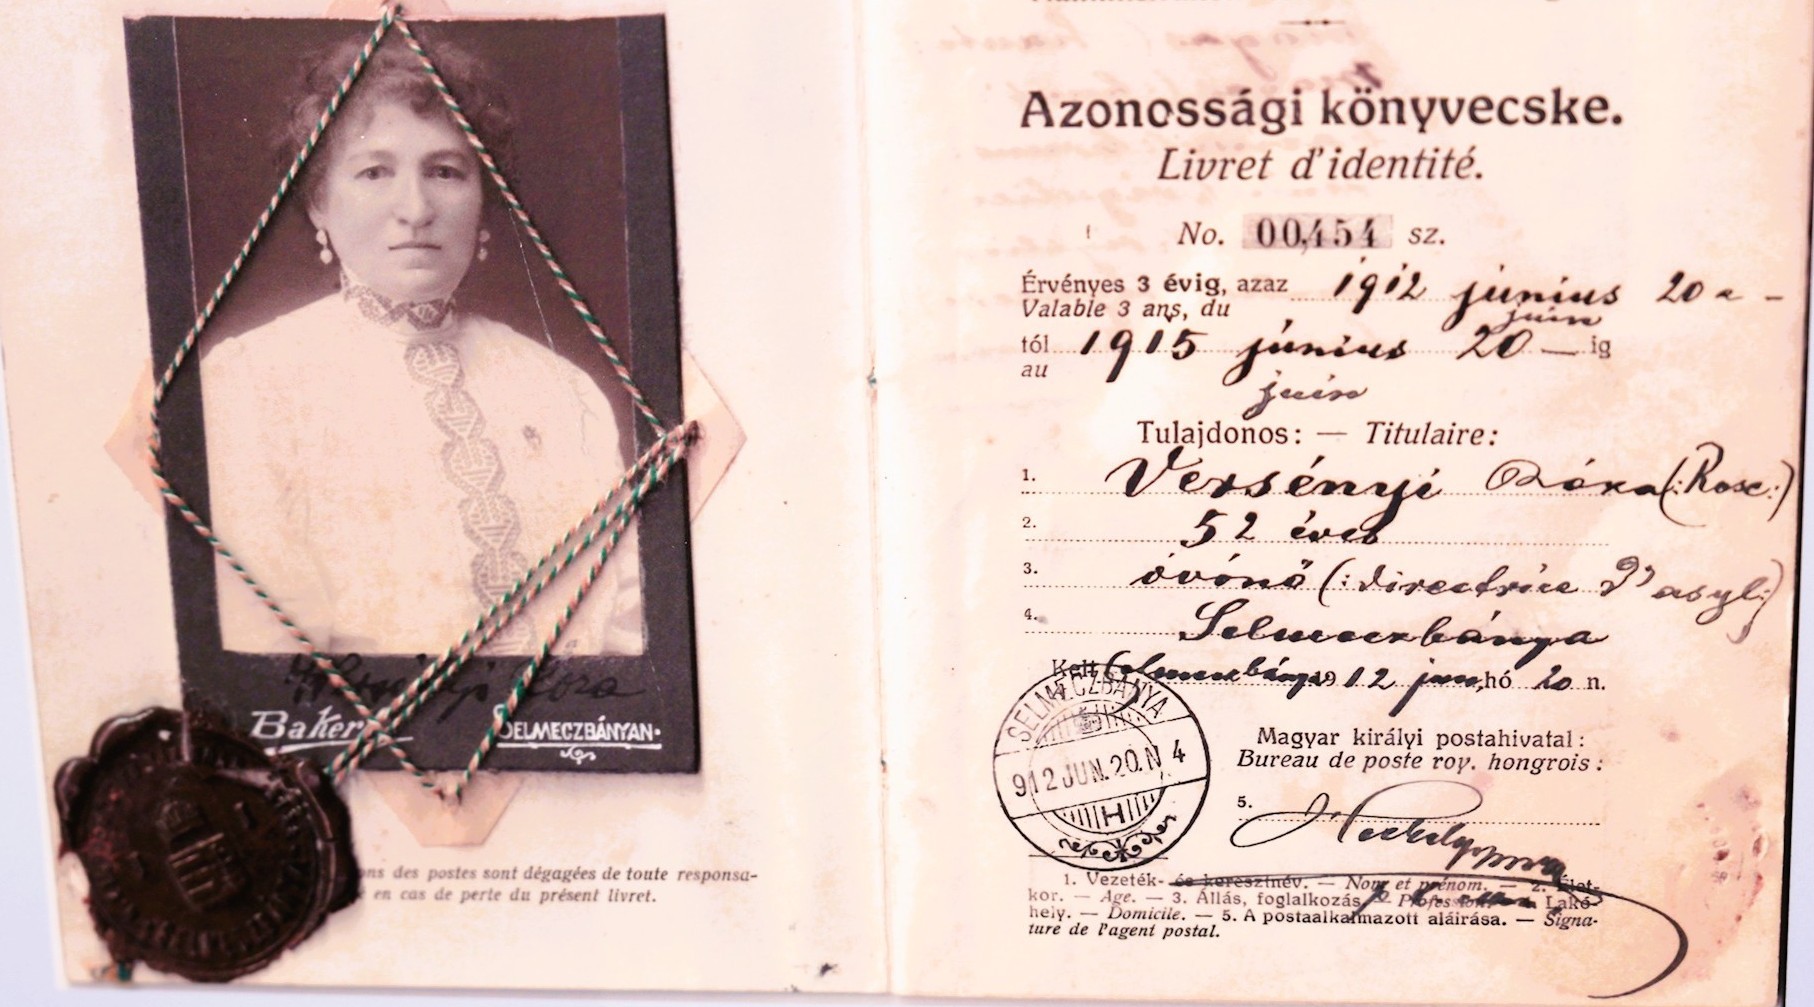 Baker
SELMECZBÁNYAN.
ons des postes sont dégagées de toute responsa-
en cas de perte du présent livret.
Azonossági könyvecske.
Livret d'identité.
No. 00,454 sz.
Érvényes 3 évig, azaz 1912 június 20 a -
Valable 3 ans, du juin
tól 1915 június 20 — ig
au juin
Tulajdonos: — Titulaire:
1. Versényi Róza (: Rose :)
2. 52 éves
3. óvónő (: directrice d'asyl :)
4. Selmeczbánya
Kelt Selmeczbánya 1912 jun, hó 20 n.
SELMECZBÁNYA
912 JUN. 20. N 4
H
Magyar királyi postahivatal:
Bureau de poste roy. hongrois:
5.
1. Vezeték- és keresztnév. — Nom et prénom. — 2. Élet-
kor. — Age. — 3. Állás, foglalkozás. — Profession. — Lakó-
hely. — Domicile. — 5. A postaalkalmazott aláirása. — Signa-
ture de l'agent postal.